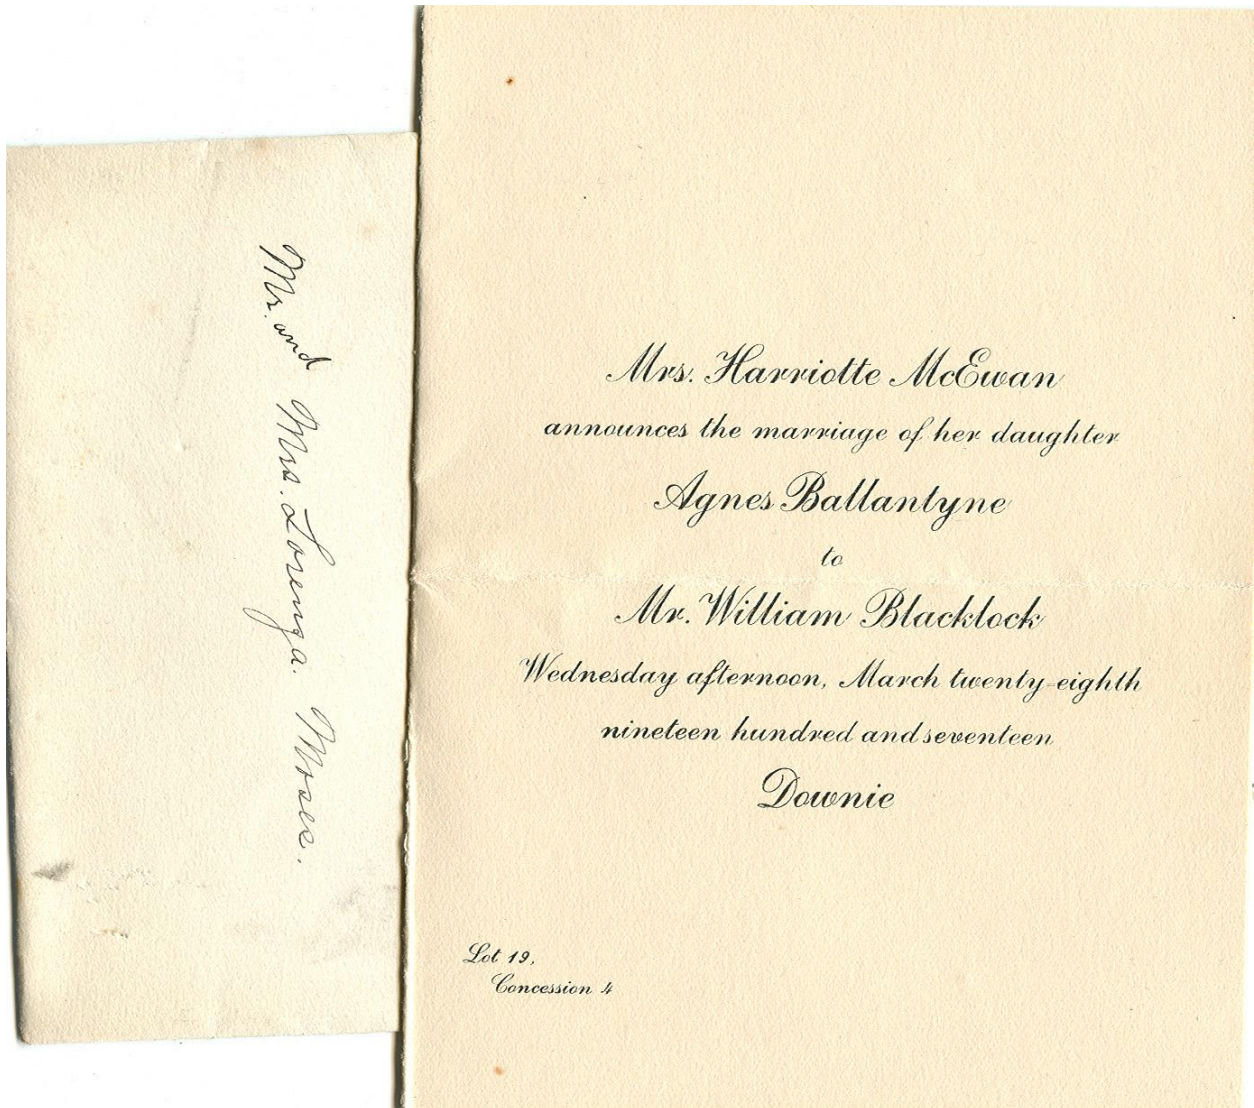 Mr. and Mrs. Lorenza. Moses.
Mrs. Harriotte McEwan
announces the marriage of her daughter
Agnes Ballantyne
to
Mr. William Blacklock
Wednesday afternoon, March twenty-eighth
nineteen hundred and seventeen
Downie
Lot 19,
Concession 4